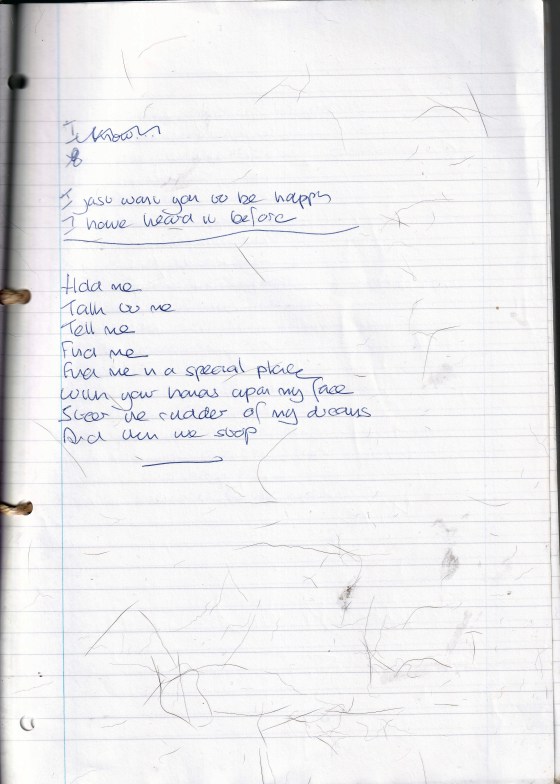 I know
I just want you to be happy
I have heard it before
Hold me
Talk to me
Tell me
Find me
Find me in a special place
With your hands upon my face
Steer the rudder of my dreams
And then we stop